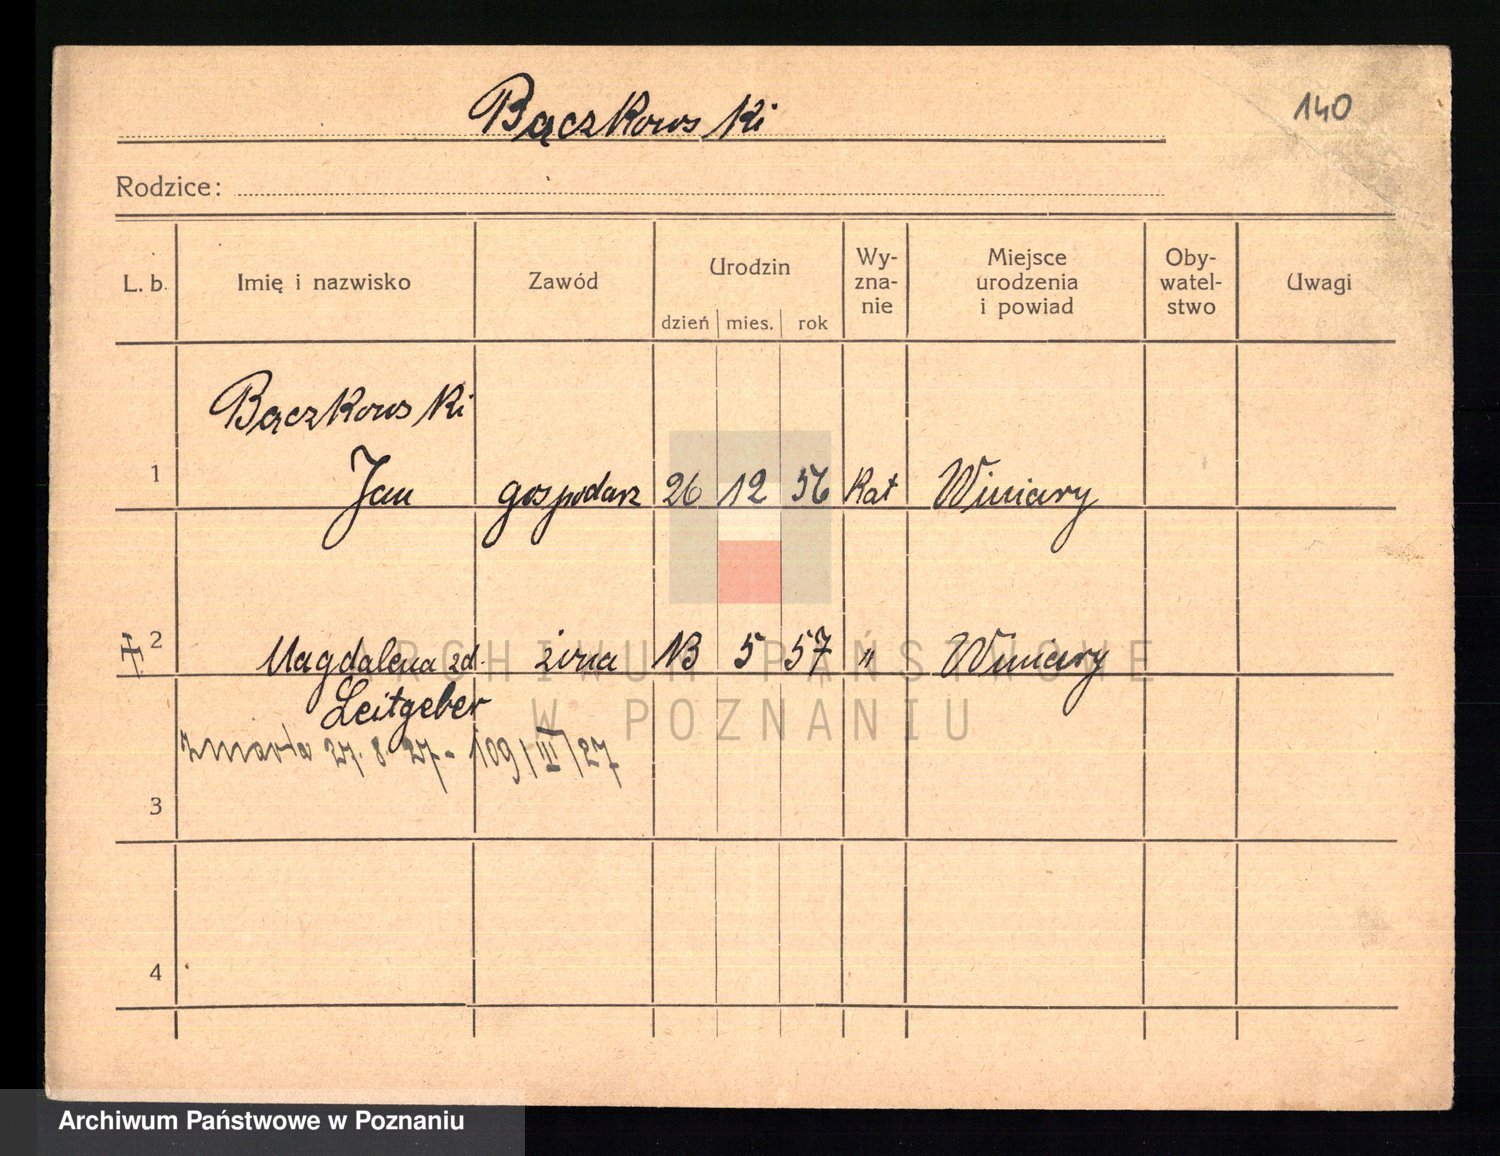 Bączkowski
140
Rodzice:
L. b. Imię i nazwisko Zawód Urodzin dzień mies. rok Wy-zna-nie Miejsce urodzenia i powiad Oby-watel-stwo Uwagi
Bączkowski
1 Jan gospodarz 26 12 56 Kat Winiary
2 Magdalena zd. żona 13 5 57 " Winiary
Leitgeber
zmarła 27. 8. 27 - 109/III/27
3
4
ARCHIWUM PAŃSTWOWE
W POZNANIU
Archiwum Państwowe w Poznaniu